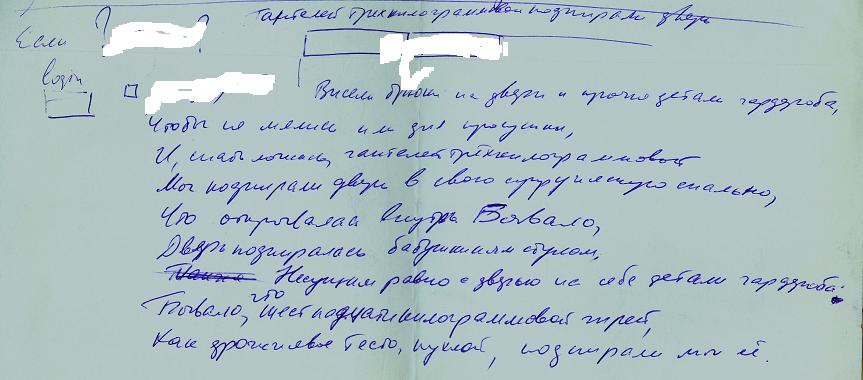 Гантелей трёхкилограммовой подпирали дверь
Если ? ?
login
Висели брюки на двери и прочие детали гардероба,
Чтобы не мялись или для просушки,
И, спать ложась, гантелей трёхкилограммовой
Мы подпирали дверь в свою супружескую спальню,
Что открывалась внутрь. Бывало,
Дверь подпиралась бабушкиным стулом,
Несущим равно с дверью на себе детали гардероба.
Бывало, что шестнадцатикилограммовой гирей,
Как дрожжевое тесто, пухлой, подпирали мы её.